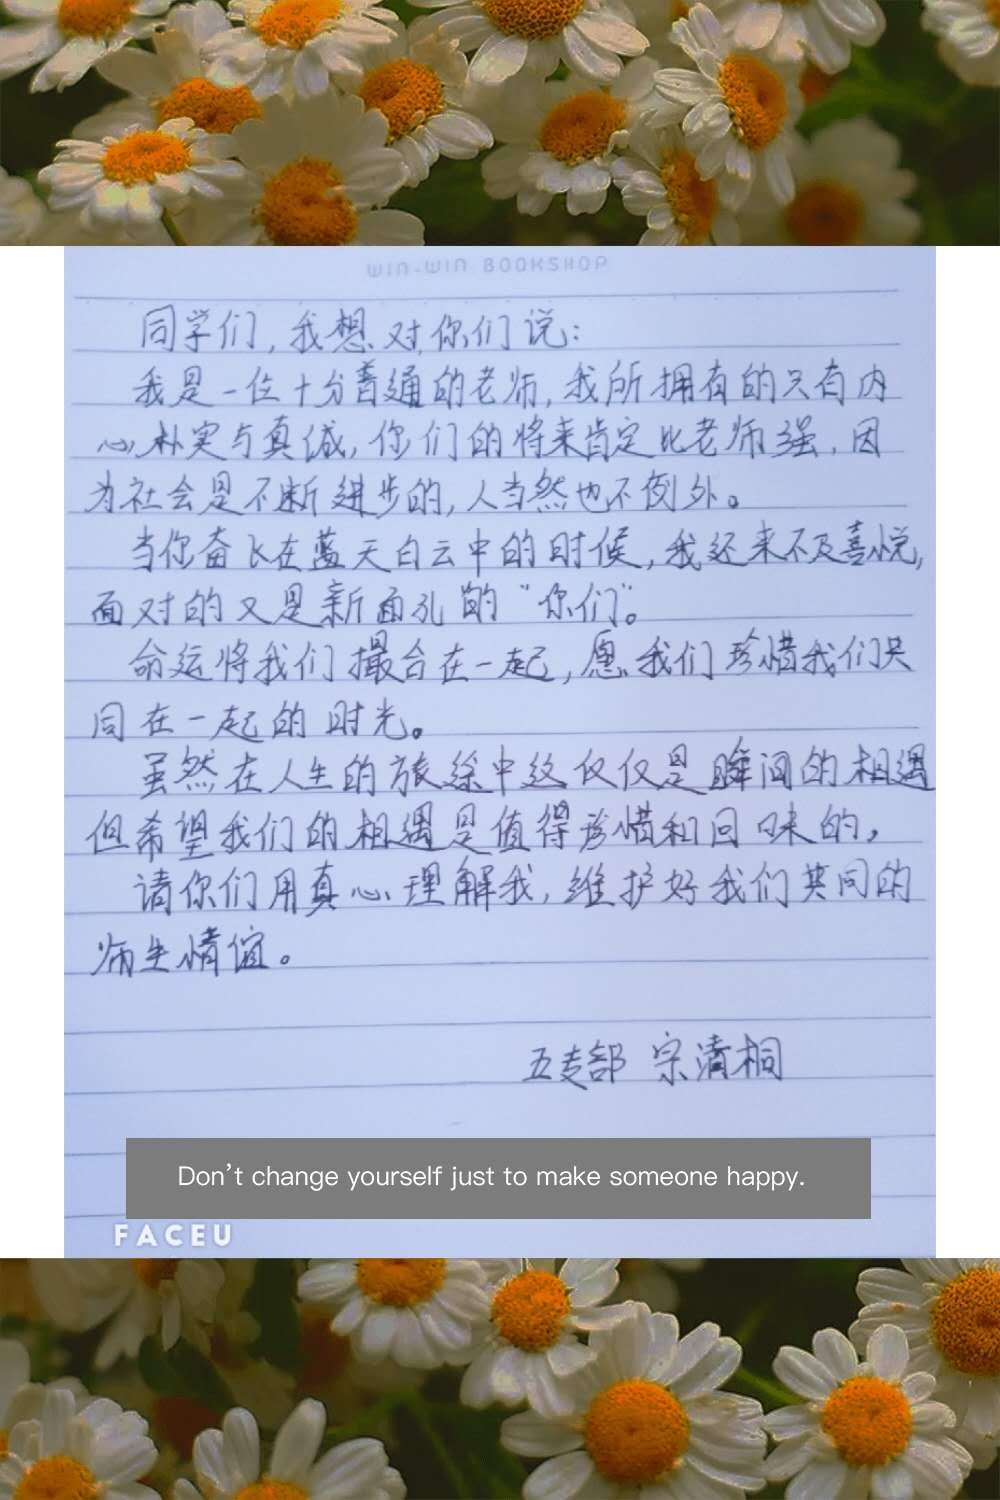 WIN-WIN BOOKSHOP
同学们，我想对你们说：
我是一位十分普通的老师，我所拥有的只有内
心朴实与真诚，你们的将来肯定比老师强，因
为社会是不断进步的，人当然也不例外。
当你奋飞在蓝天白云中的时候，我还来不及喜悦，
面对的又是新面孔的“你们”。
命运将我们撮合在一起，愿我们珍惜我们共
同在一起的时光。
虽然在人生的旅途中这仅仅是瞬间的相遇
但希望我们的相遇是值得珍惜和回味的，
请你们用真心理解我，维护好我们共同的
师生情谊。
五支部 宗清桐
Don't change yourself just to make someone happy.
FACEU